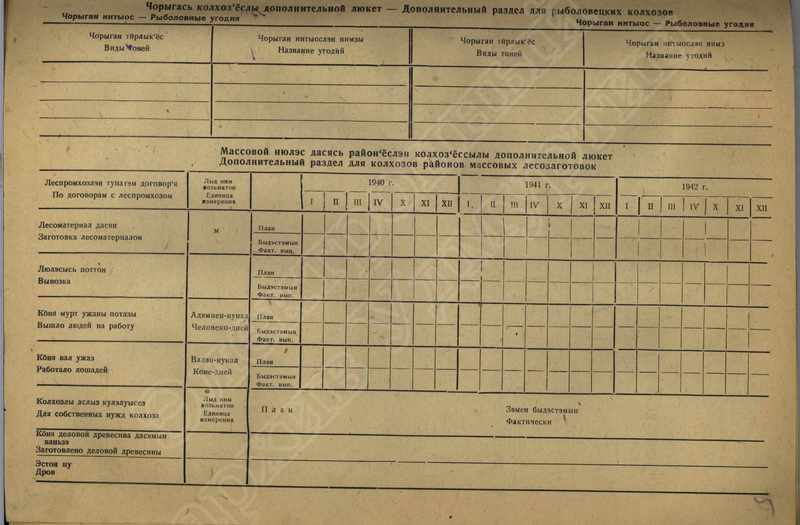 Чорыгась колхоз'ёслы дополнительной люкет — Дополнительный раздел для рыболовецких колхозов
Чорыган интыос — Рыболовные угодия
Чорыган интыос — Рыболовные угодия
Чорыган тӥрлык'ёс
Виды тоней
Чорыган интыослэн нимзы
Название угодий
Чорыган тӥрлык'ёс
Виды тоней
Чорыган интыослэн нимз
Название угодий
Массовой нюлэс дасясь район'ёслэн колхоз'ёссылы дополнительной люкет
Дополнительный раздел для колхозов районов массовых лесозаготовок
Леспромхозлэн тупатэм договор'я
По договорам с леспромхозом
Лыд ним
возьматов
Единица
измерения
1940 г.
1941 г.
1942 г.
I II III IV X XI XII I II III IV X XI XII I II III IV X XI XII
Лесоматериал дасян
Заготовка лесоматериалов
м
План
Быдэстэмын
Факт. вып.
Люлэсысь поттон
Вывозка
План
Быдэстэмын
Факт. вып.
Кӧня мурт ужаны потазы
Вышло людей на работу
Адямиен-нунал
Человеко-дней
План
Быдэстэмын
Факт. вып.
Кӧня вал ужаз
Работало лошадей
Валэн-нунал
Коне-дней
План
Быдэстэмын
Факт. вып.
Колхозлы аслыз кулэлуысез
Для собственных нужд колхоза
Лыд ним
возьматов
Единица
измерения
План
Зэмен быдэстэмын
Фактически
Кӧня деловой древесина дасямын
ваньзэ
Заготовлено деловой древесины
Эстон пу
Дров